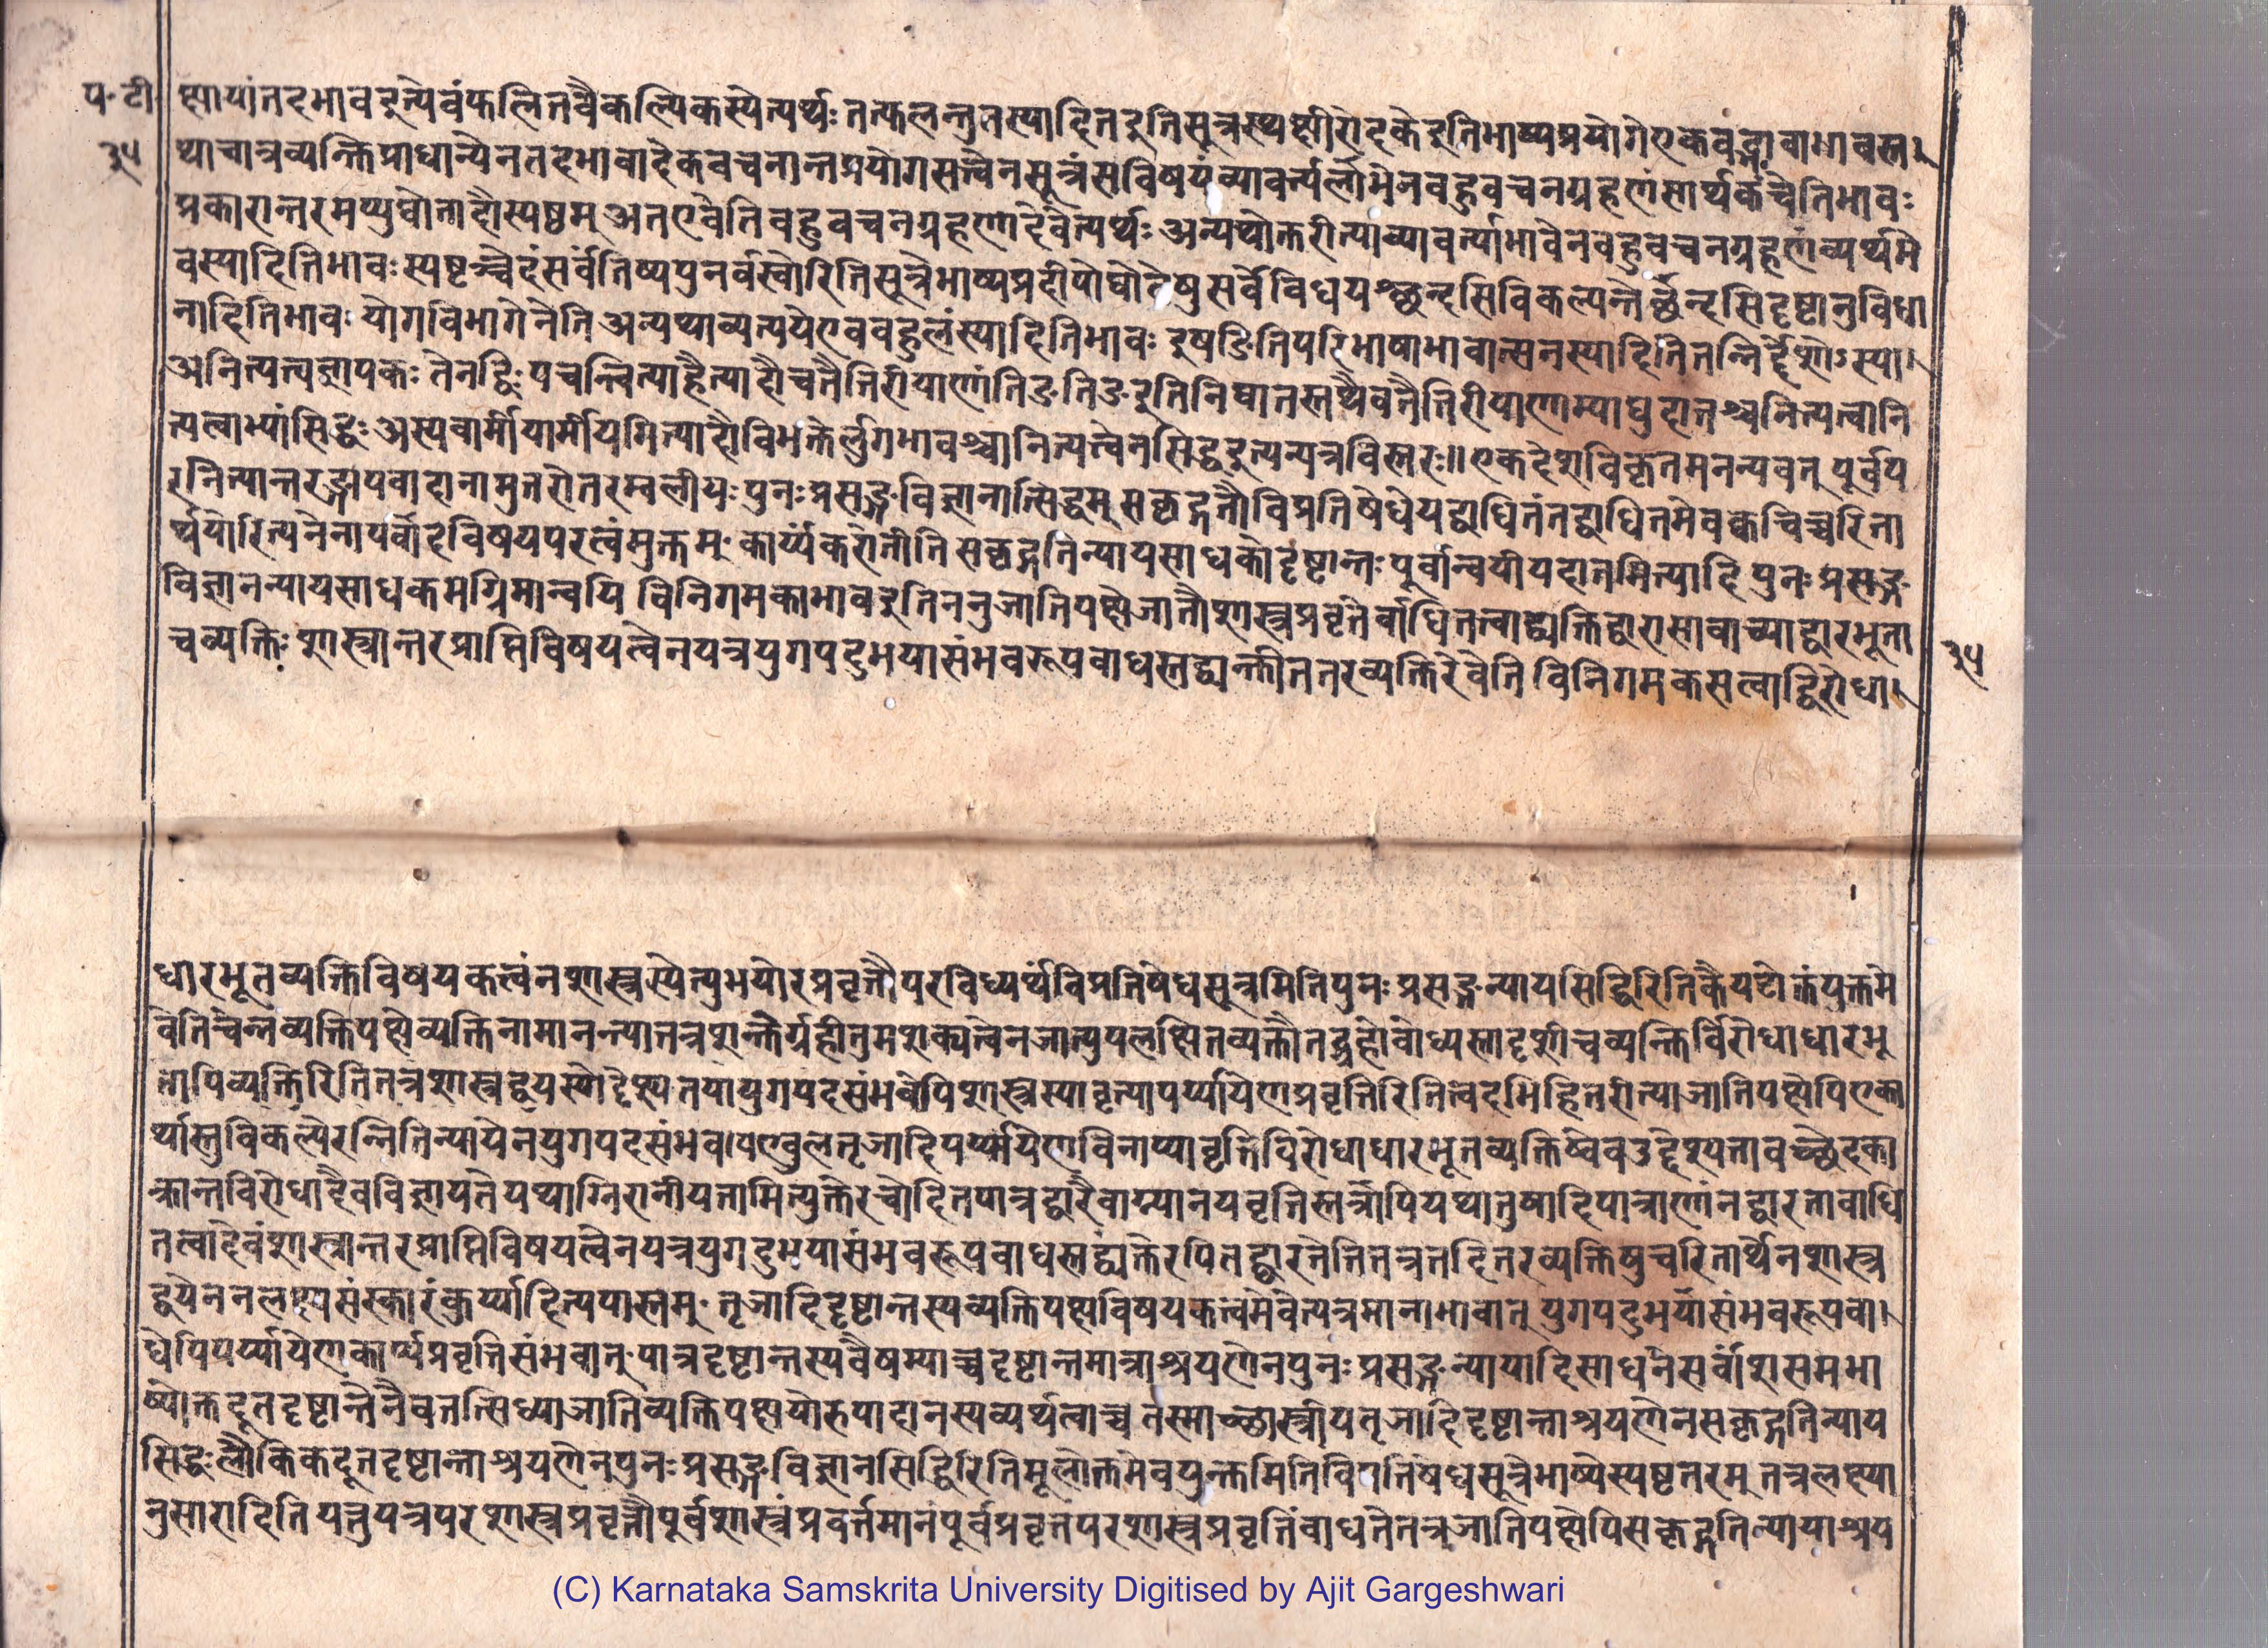 प॰ टी॰
३५
क्षायांतदभावइत्येवंफलितवैकल्पिकस्येत्यर्थः तत्फलन्तुतस्यादितइतिसूत्रस्थक्षीरोदकेइतिभाष्यप्रयोगेएकवद्भावाभावस्त
थाचात्रव्यक्तिप्राधान्येनतदभावादेकवचनान्तप्रयोगसत्त्वेनसूत्रंसविषयंव्यावर्त्यलाभेनबहुवचनग्रहणंसार्थकंचेतिभावः
प्रकारान्तरमप्युद्योतादौस्पष्टम् अतएवेतिबहुवचनग्रहणादेवेत्यर्थः अन्यथोक्तरीत्याव्यावर्त्याभावेनबहुवचनग्रहणंव्यर्थमे
वस्यादितिभावः स्पष्टञ्चेदंसर्वंतिष्यपुनर्वस्वोरितिसूत्रेभाष्यप्रदीपोद्योतेषु सर्वेविधयश्छन्दसिविकल्प्यन्ते छन्दसिदृष्टानुविधा
नादितिभावः योगविभागेनेति अन्यथाव्यत्ययेएवबहुलंस्यादितिभावः इषङितिपरिभाषाभावात्सनस्यादितितन्निर्द्देशोऽस्या
अनित्यत्वज्ञापकः तेनद्विः पचन्त्वित्यादेत्यादौचतैत्तिरीयाणांतिङतिङइतिनिघातस्तथैवतैत्तिरीयाणाम्याद्युदात्तश्चनित्यत्वानि
त्यत्वाभ्यांसिद्धः अस्यवामीयामीयमित्यादौविभक्तेर्लुगभावश्चानित्यत्वेनसिद्धइत्यन्यत्रविस्तरः॥ एकदेशविकृतमनन्यवत् पूर्वप
रनित्यान्तरङ्गापवादानामुत्तरोत्तरम्बलीयः पुनःप्रसङ्गविज्ञानात्सिद्धम् सकृद्गतौविप्रतिषेधेयद्बाधितंतद्बाधितमेव क्वचिच्चरिता
र्थयोरित्यनेनापवादविषयपरत्वंमुक्तम् कार्य्यंकरोतीति सकृद्गतिन्यायसाधकोदृष्टान्तः पूर्वान्वयीयदातमित्यादि पुनः प्रसङ्ग
विज्ञानन्यायसाधकमग्रिमान्वयि विनिगमकाभावइतिननुजातिपक्षेजातौशास्त्रप्रवृत्तेर्बाधितत्वाद्व्यक्तिद्वारासावाच्याद्वारभूता
चव्यक्तिः शास्त्रान्तरप्राप्तिविषयत्वेनयत्रयुगपदुभयासंभवरूपबाधस्तद्व्यक्तीततरव्यक्तिरेवेति विनिगमकसत्वाद्विरोधा
३५
धारभूतव्यक्तिविषयकत्वंनशास्त्रस्येत्युभयोरप्रवृत्तौपरविध्यर्थंविप्रतिषेधसूत्रमितिपुनःप्रसङ्गन्यायसिद्धिरितिकैयटोक्तंयुक्तमे
वेतिचेन्नव्यक्तिपक्षेव्यक्तिनामानन्त्यात्तत्रशक्तेर्ग्रहीतुमशक्यत्वेनजात्युपलक्षितव्यक्तौतद्ग्रहोवोध्यस्तादृशीचव्यक्तिर्विरोधाधारभू
तापिव्यक्तिरितितत्रशास्त्रद्वयस्योद्देश्यतयायुगपदसंभवेपिशास्त्रस्यावृत्त्यापर्य्यायेणप्रवृत्तिरितित्वदभिहितरीत्याजातिपक्षेपिएका
र्थास्तुविकल्पेरन्नितिन्यायेनयुगपदसंभवाण्वुल्तृजादिपर्य्यायेणविनाप्यावृत्तिविरोधाधारभूतव्यक्तिष्वेवउद्देश्यतावच्छेदका
क्रान्तविरोधादेवविज्ञायतेयथाग्निरानीयतामित्युक्तेरचोदितपात्रद्वारैवाग्न्यानयवृत्तिस्तत्रापियथातुषादिपात्राणांनद्वारतावाधि
तत्वादेवंशास्त्रान्तरप्राप्तिविषयत्वेनयत्रयुगदुभयासंभवरूपबाधस्तद्व्यक्तेरपितद्द्वारतेतितत्रतदितरव्यक्तिषुचरितार्थेनशास्त्र
द्वयेननलक्ष्यसंस्कारंकुर्य्यादित्यपास्तम् तृजादिदृष्टान्तस्यव्यक्तिपक्षविषयकत्वमेवेत्यत्रमानाभावात् युगपदुभयासंभवरूपबा
धेपिपर्य्यायेणकार्य्यप्रवृत्तिसंभवात् पात्रदृष्टान्तस्यवैषम्याच्च दृष्टान्तमात्राश्रयणेनपुनःप्रसङ्गन्यायादिसाधनेसर्वांशसमभा
ष्योक्तदूतदृष्टान्तेनैवतत्सिध्याजातिव्यक्तिपक्षयोरुपादानस्यव्यर्थत्वाच्च तस्माच्छास्त्रीयतृजादिदृष्टान्ताश्रयणेनसकृद्गतिन्याय
सिद्धःलौकिकदूतदृष्टान्ताश्रयणेनपुनःप्रसङ्गविज्ञानसिद्धिरितिमूलोक्तमेवयुक्तमितिविप्रतिषेधसूत्रेभाष्येस्पष्टतरम् तत्रलक्ष्या
नुसारादिति यत्तुयत्रपरशास्त्रप्रवृत्तौपूर्वशास्त्रंप्रवर्त्तमानंपूर्वप्रवृत्तपरशास्त्रप्रवृत्तिंबाधतेतत्रजातिपक्षेपिसकृद्गतिन्यायाश्रय
(C) Karnataka Samskrita University Digitised by Ajit Gargeshwari